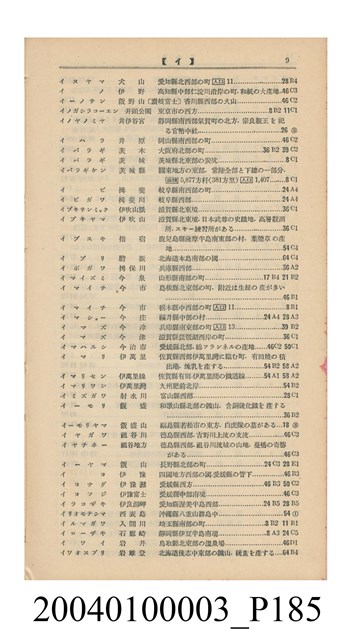 【イ】 9
イヌヤマ 犬山 愛知縣北西部の町 A13 11 28 B4
イノ 伊野 高知縣中部仁淀川沿岸の町. 和紙の大産地 46 C3
イーノテン 飯野山(讃岐富士) 香川縣西部の火山 46 C2
イノガシラコーエン 井頭公園 東京市の西方 8 B2 11 C1
イノヤノミヤ 井伊谷宮 靜岡縣南西部氣賀町の北方. 宗良親王を祀る官幣中社 26
イハラ 井原 岡山縣南西部の町 46 C2
イバラギ 茨木 大阪府北部の町 36 B2 39 C2
イバラギ 茨城 茨城縣北東部の炭坑 8 C1
イバラギケン 茨城縣 關東地方の東部. 常陸全部と下總の一部分. 5,877方粁(381方里) A13 1,407 8 C1
イビ 揖斐 岐阜縣南西部の町 24 A4
イビガワ 揖斐川 岐阜縣西部 24 A4
イブキサンミャク 伊吹山脈 滋賀縣北東境 36 C1
イブキヤマ 伊吹山 滋賀縣北東境. 日本武尊の史蹟地. 高層觀測所. スキー練習所がある 36 C1
イブスキ 指宿 鹿兒島縣薩摩半島南東部の村. 葉煙草の產地 54 C4
イブリ 膽振 北海道本島南部の國 64 C4
イボガワ 揖保川 兵庫縣西部 36 A2
イマイズミ 今泉 山形縣南部の町 17 B4 21 B2
イマイチ 今市 島根縣北東部の町. 附近は生絲の產が多い 46 B1
イマイチ 今市 栃木縣中西部の町 A13 11 8 B1
イマショー 今庄 福井縣中部の村 24 A4 28 A3
イマズ 今津 兵庫縣南東部の町 A13 13 39 B2
イマズ 今津 滋賀縣琵琶湖西岸の町 36 C1
イマハルシ 今治市 愛媛縣北部. 綿フランネルの產地 46 C2 50 C1
イマリ 伊萬里 佐賀縣西部伊萬里灣に臨む町. 有田燒の積出地. 煉乳を產する 54 B2 58 A2
イマリセン 伊萬里線 佐賀縣有田・伊萬里間の鐵道線 54 A1 58 A2
イマリワン 伊萬里灣 九州肥前北岸 54 B2
イミズガワ 射水川 富山縣西部 28 C1
イーモリ 飯盛 和歌山縣北部の鑛山. 含銅硫化鐵を產する 36 D2
イーモリヤマ 飯盛山 福島縣若松市の東方. 白虎隊の墓がある 18
イヤガワ 祖谷川 德島縣西部. 吉野川上流の支流 46 C3
イヤチホー 祖谷地方 德島縣西部. 祖谷川流域の山地. 蔓橋の奇勝がある 46 C3
イーヤマ 飯山 長野縣北部の町 24 C3 28 E1
イヨ 伊豫 四國地方西部の國. 愛媛縣の管下 46 B3
イヨナダ 伊豫灘 愛媛縣西方 46 B3 50 C2
イヨフジ 伊豫富士 愛媛縣中部南境 46 C3
イラコザキ 伊良湖岬 愛知縣渥美半島西部 24 B5 28 B5
イリオモテシマ 西表島 沖繩縣八重山群島中 54
イルマガワ 入間川 埼玉縣南部の町 8 B2 11 B1
イローザキ 石廊崎 靜岡縣伊豆半島南端 24 C5 28 E5
イワイ 岩井 鳥取縣北東部の溫泉場 46 D1
イワオスブリ 岩雄登 北海道後志中東部の鑛山. 硫黃を產する 64 B4
20040100003_P185